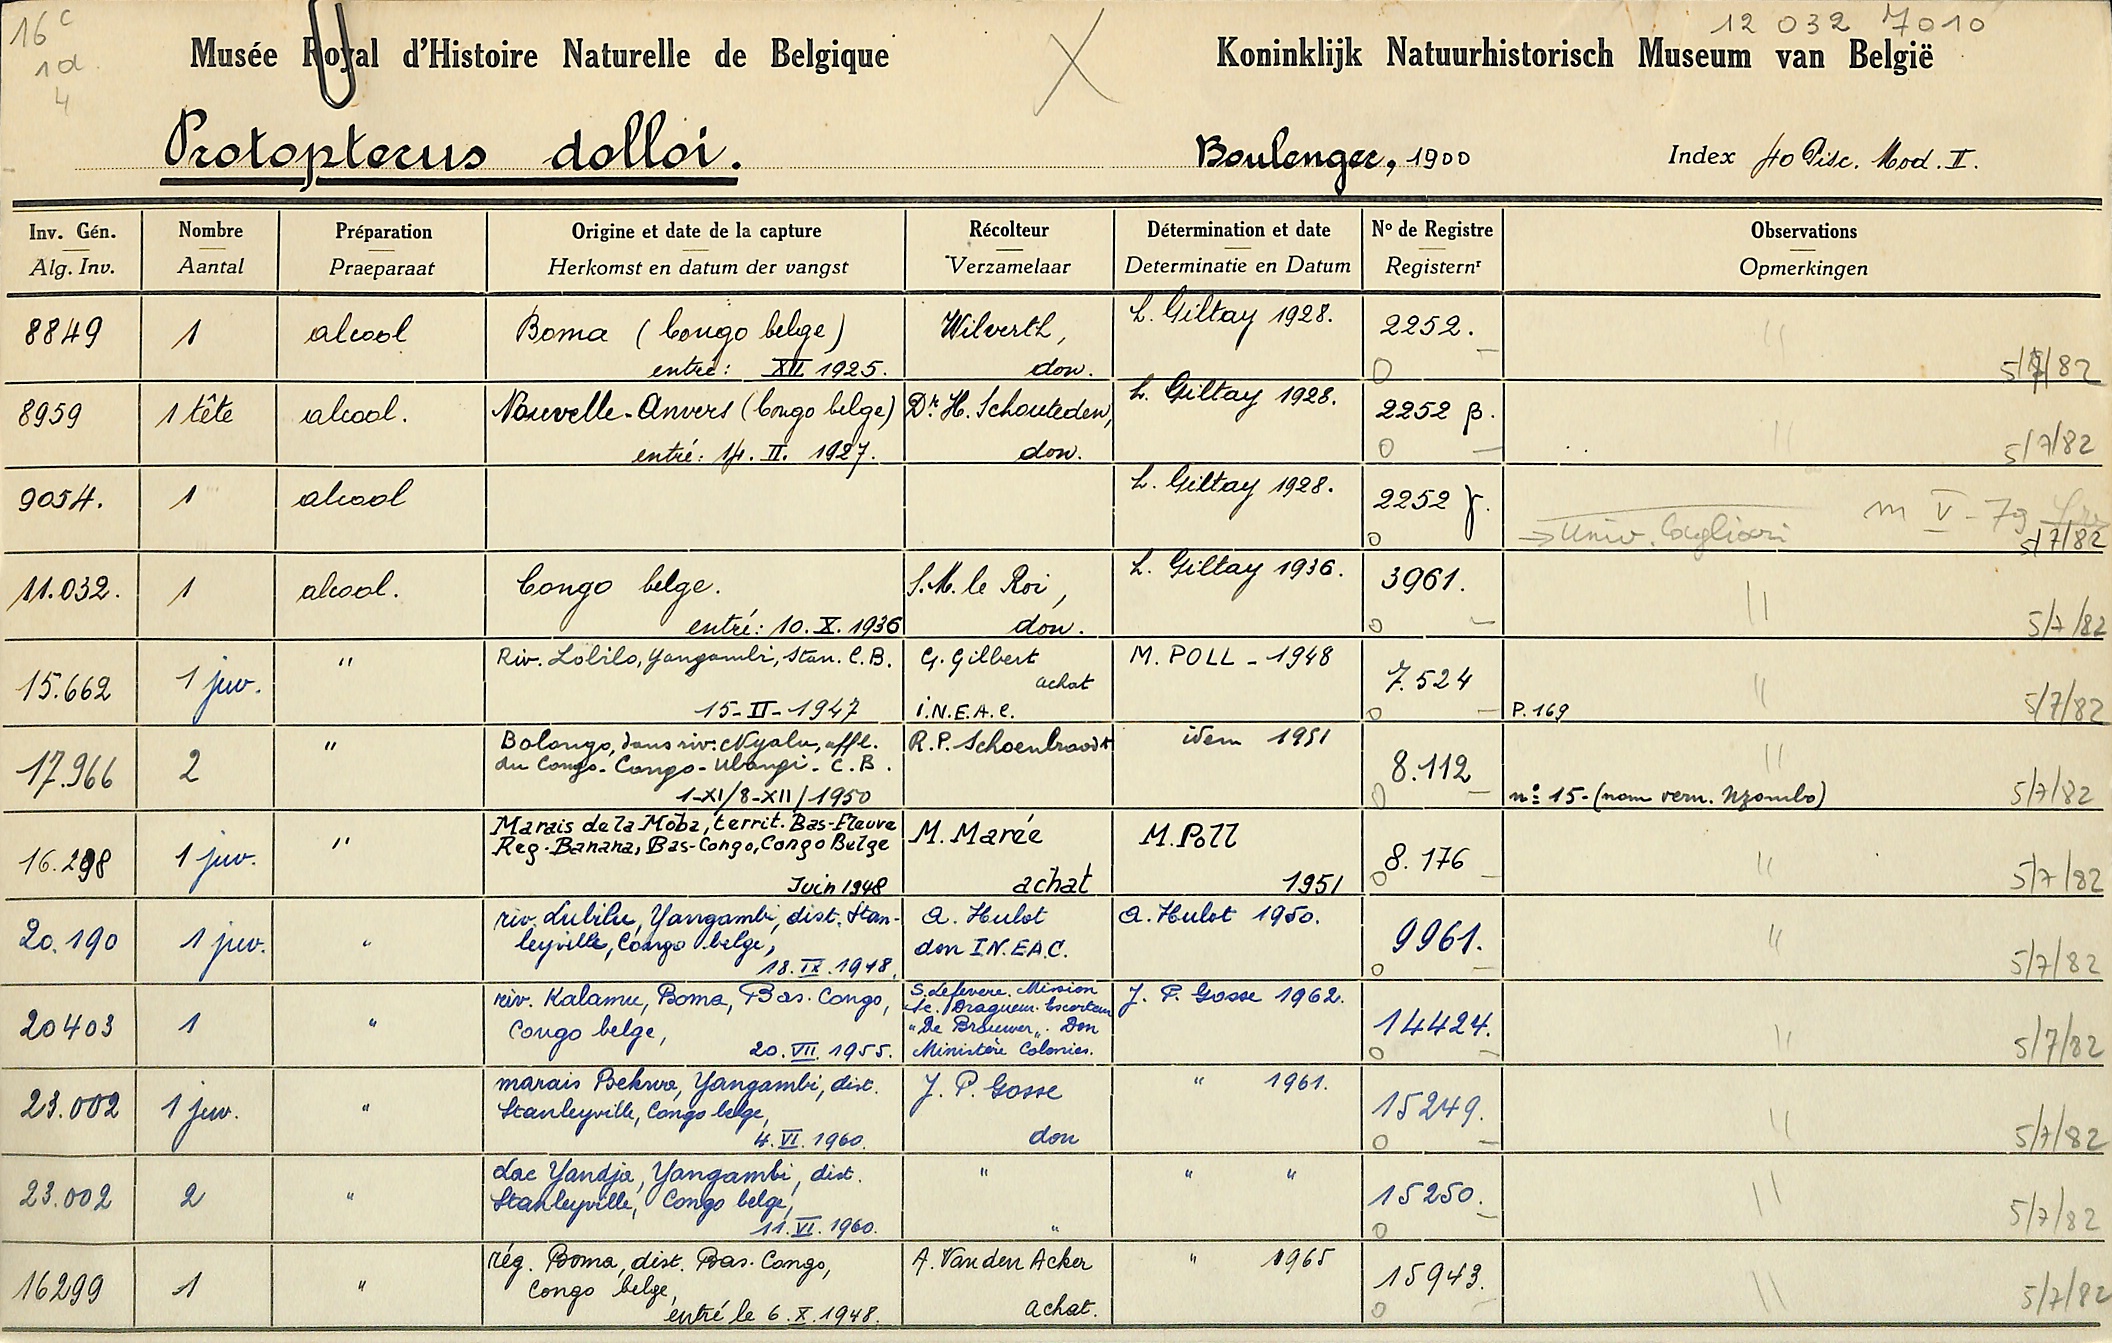 16 c
1d.
4
12 032 7010
Musée Royal d'Histoire Naturelle de Belgique
Koninklijk Natuurhistorisch Museum van België
Protopterus dolloi.
Boulenger, 1900
Index 40 Pisc. Mod. II.
Inv. Gén. Nombre Préparation Origine et date de la capture Récolteur Détermination et date No de Registre Observations
Alg. Inv. Aantal Praeparaat Herkomst en datum der vangst Verzamelaar Determinatie en Datum Registernr Opmerkingen
8849 1 alcool Boma (Congo belge) Wilverth, L. Giltay 1928. 2252. "
entré: XII 1925. don. 5/7/82
8959 1 tête alcool. Nouvelle-Anvers (Congo belge) Dr. H. Schouteden, L. Giltay 1928. 2252 β. "
entré: 14. II. 1927. don. 5/7/82
9054. 1 alcool L. Giltay 1928. 2252 γ. m V - 79
→ Univ. Cagliari 5/7/82
11.032. 1 alcool. Congo belge. S.M. le Roi, L. Giltay 1936. 3961. "
entré: 10. X. 1936 don. 5/7/82
15.662 1 juv. " Riv. Lobilo, Yangambi, Stan. C.B. G. Gilbert M. POLL - 1948 7.524 "
achat
15-II-1947 I.N.E.A.C. P. 169 5/7/82
17.966 2 " Bolongo, dans riv. Nyalu, affl. R.P. Schoenbroodt idem 1951 8.112 "
du Congo - Congo-Ubangi - C.B.
1-XI/8-XII/1950 no 15-(nom vern. Nzombo) 5/7/82
16.298 1 juv. " Marais de la Moba, territ. Bas-Fleuve M. Marée M. Poll 8.176 "
Reg. Banana, Bas-Congo, Congo Belge
Juin 1948 achat 1951 5/7/82
20.190 1 juv. " riv. Lubilu, Yangambi, dist. Stan- A. Hulot A. Hulot 1950. 9961. "
leyville, Congo belge, don I.N.E.A.C.
18. IX. 1948. 5/7/82
20403 1 " riv. Kalamu, Boma, Bas. Congo, S. Lefevere. Mission J. P. Gosse 1962. 14424. "
Sc. Dragueur. Escorteur
Congo belge, "De Brouwer". Don
20. VII. 1955. Ministère Colonies. 5/7/82
23.002 1 juv. " marais Bekwe, Yangambi, dist. J. P. Gosse " 1961. 15249. "
Stanleyville, Congo belge,
4. VI. 1960. don 5/7/82
23.002 2 " Lac Yandja, Yangambi, dist. " " " 15250. "
Stanleyville, Congo belge,
11. VI. 1960. " 5/7/82
16299 1 " rég. Boma, dist. Bas. Congo, A. Van den Acker " 1965 15943. "
Congo belge,
entré le 6. X. 1948. achat. 5/7/82